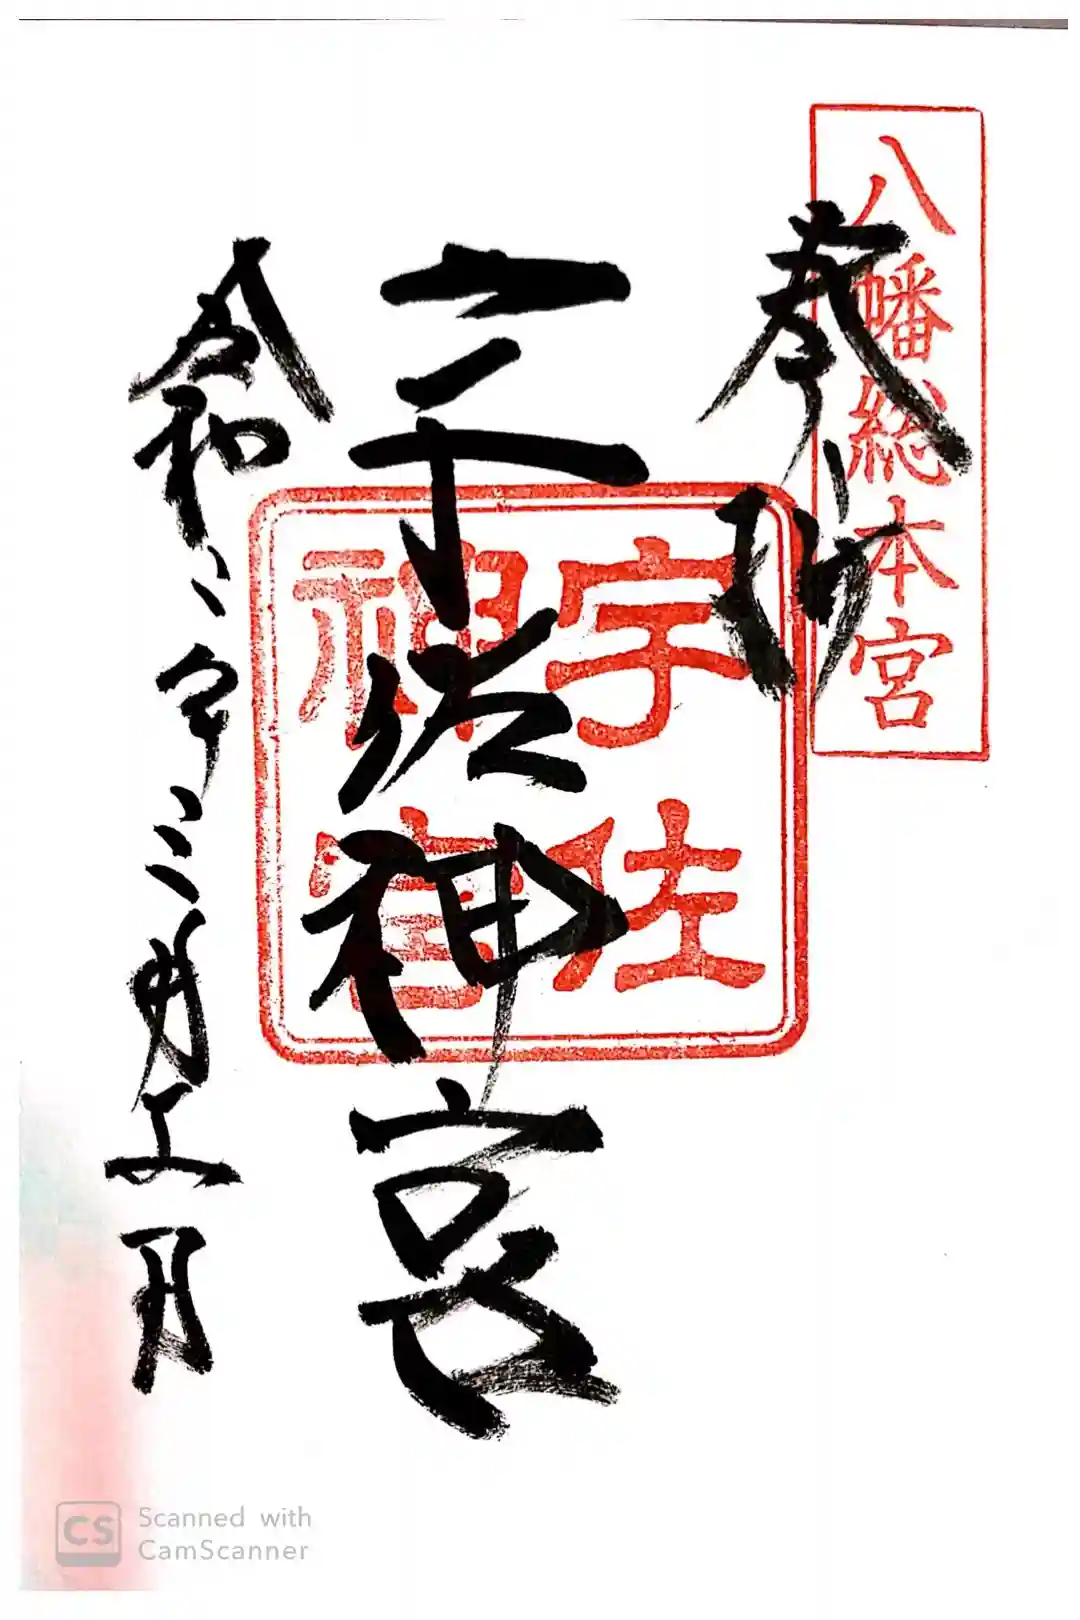 八幡総本宮
奉拝
宇佐神宮
宇佐神宮
令和二年三月五日
CS Scanned with
CamScanner